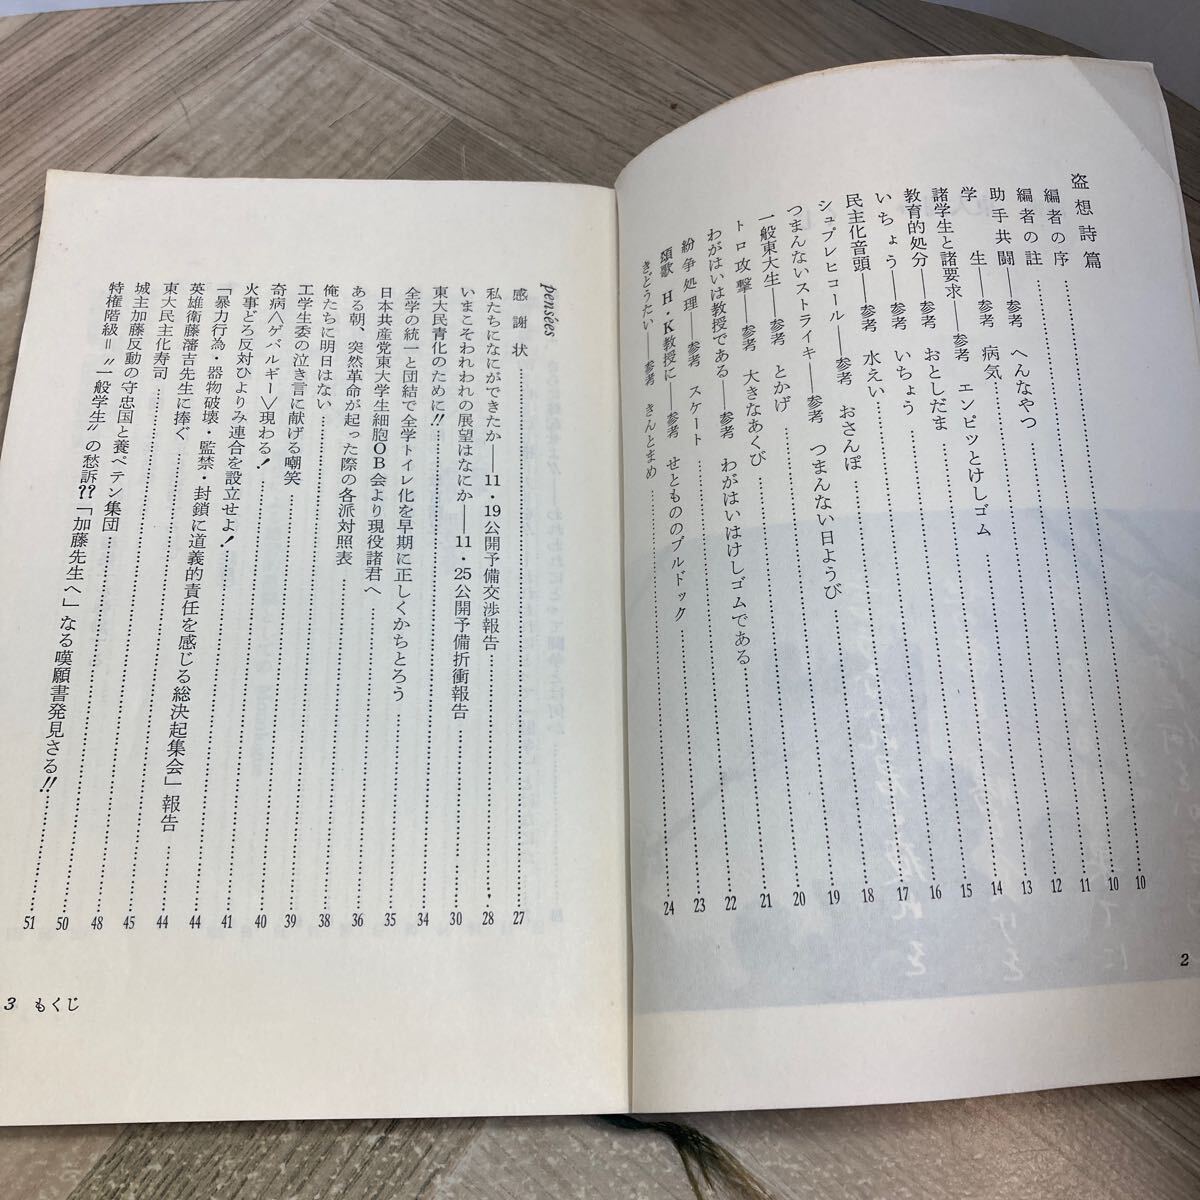 盗想詩篇
編者の序……10
編者の註……10
助手共闘——参考 へんなやつ……11
学生——参考 病気……12
諸学生と諸要求——参考 エンピツとけしゴム……13
教育的処分——参考 おとしだま……14
いちょう——参考 いちょう……15
民主化音頭——参考 水えい……16
シュプレヒコール——参考 おさんぽ……17
つまんないストライキ——参考 つまんない日ようび……18
一般東大生——参考 とかげ……19
トロ攻撃——参考 大きなあくび……20
わがはいは教授である——参考 わがはいはけしゴムである……21
紛争処理——参考 スケート……22
頌歌 H・K教授に——参考 せともののブルドック……23
きどうたい——参考 きんとまめ……24
2
pensées
感謝状……27
私たちになにができたか——11・19公開予備交渉報告……28
いまこそわれわれの展望はなにか——11・25公開予備折衝報告……30
東大民青化のために!!……34
全学の統一と団結で全学トイレ化を早期に正しくかちとろう……35
日本共産党東大学生細胞OB会より現役諸君へ……36
ある朝、突然革命が起った際の各派対照表……38
俺たちに明日はない……39
工学生委の泣き言に献げる嘲笑……40
奇病〈ゲバルギー〉現わる!……41
火事どろ反対ひよりみ連合を設立せよ!……44
「暴力行為・器物破壊・監禁・封鎖に道義的責任を感じる総決起集会」報告……44
英雄衛藤瀋吉先生に捧ぐ……45
東大民主化寿司……48
城主加藤反動の守忠国と養ペテン集団……50
特権階級＝〝一般学生〟の愁訴??「加藤先生へ」なる嘆願書発見さる!!……51
3 もくじ